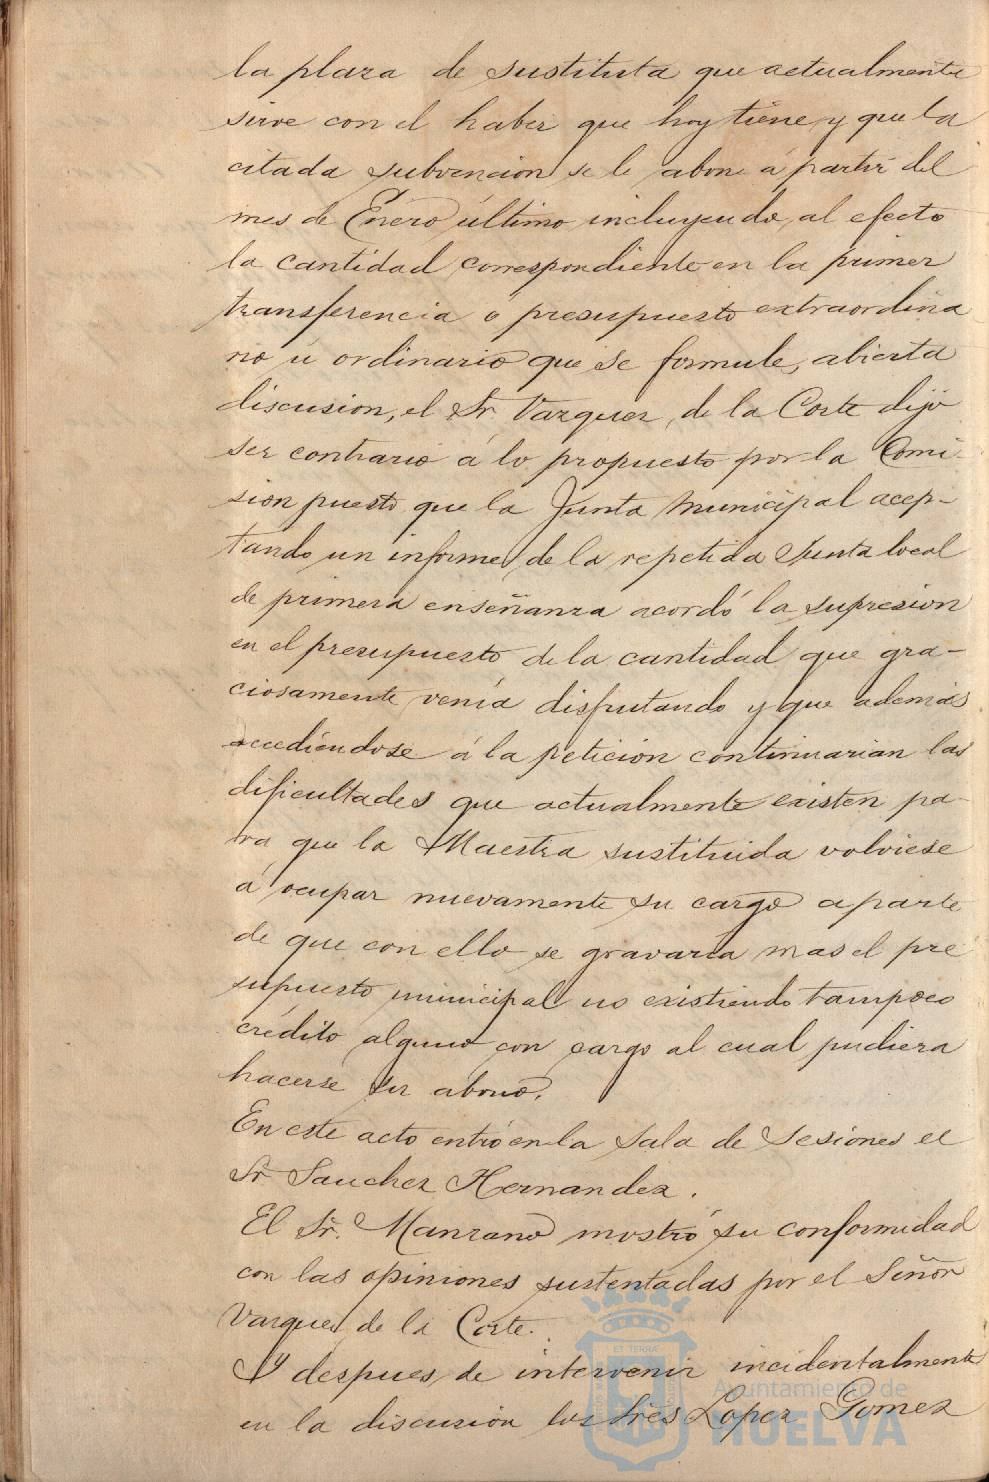 la plaza de sustituta que actualmente
sirve con el haber que hoy tiene y que la
citada subvencion se le abone á partir del
mes de Enero último incluyendo al efecto
la cantidad correspondiente en la primer
transferencia ó presupuesto extraordina
rio u ordinario que se formule, abierta
discusion, el Sr. Vazquez de la Corte dijo
ser contrario á lo propuesto por la Comi-
sion puesto que la Junta Municipal acep-
tando un informe de la repetida Junta local
de primera enseñanza acordó la supresion
en el presupuesto de la cantidad que gra-
ciosamente venía disfrutando y que además
accediéndose á la peticion continuarian las
dificultades que actualmente existen pa-
ra que la Maestra sustituida volviese
á ocupar nuevamente su cargo aparte
de que con ello se gravaría mas el pre
supuesto municipal no existiendo tampoco
crédito alguno con cargo al cual pudiera
hacerse su abono.
En este acto entró en la Sala de Sesiones el
Sr. Sanchez Hernandez.
El Sr. Manzano mostró su conformidad
con las opiniones sustentadas por el Señor
Vazquez de la Corte.
Y despues de intervenir incidentalmente
en la discusion los Sres Lopez Gomez
ET TERRA
Ayuntamiento de
HUELVA